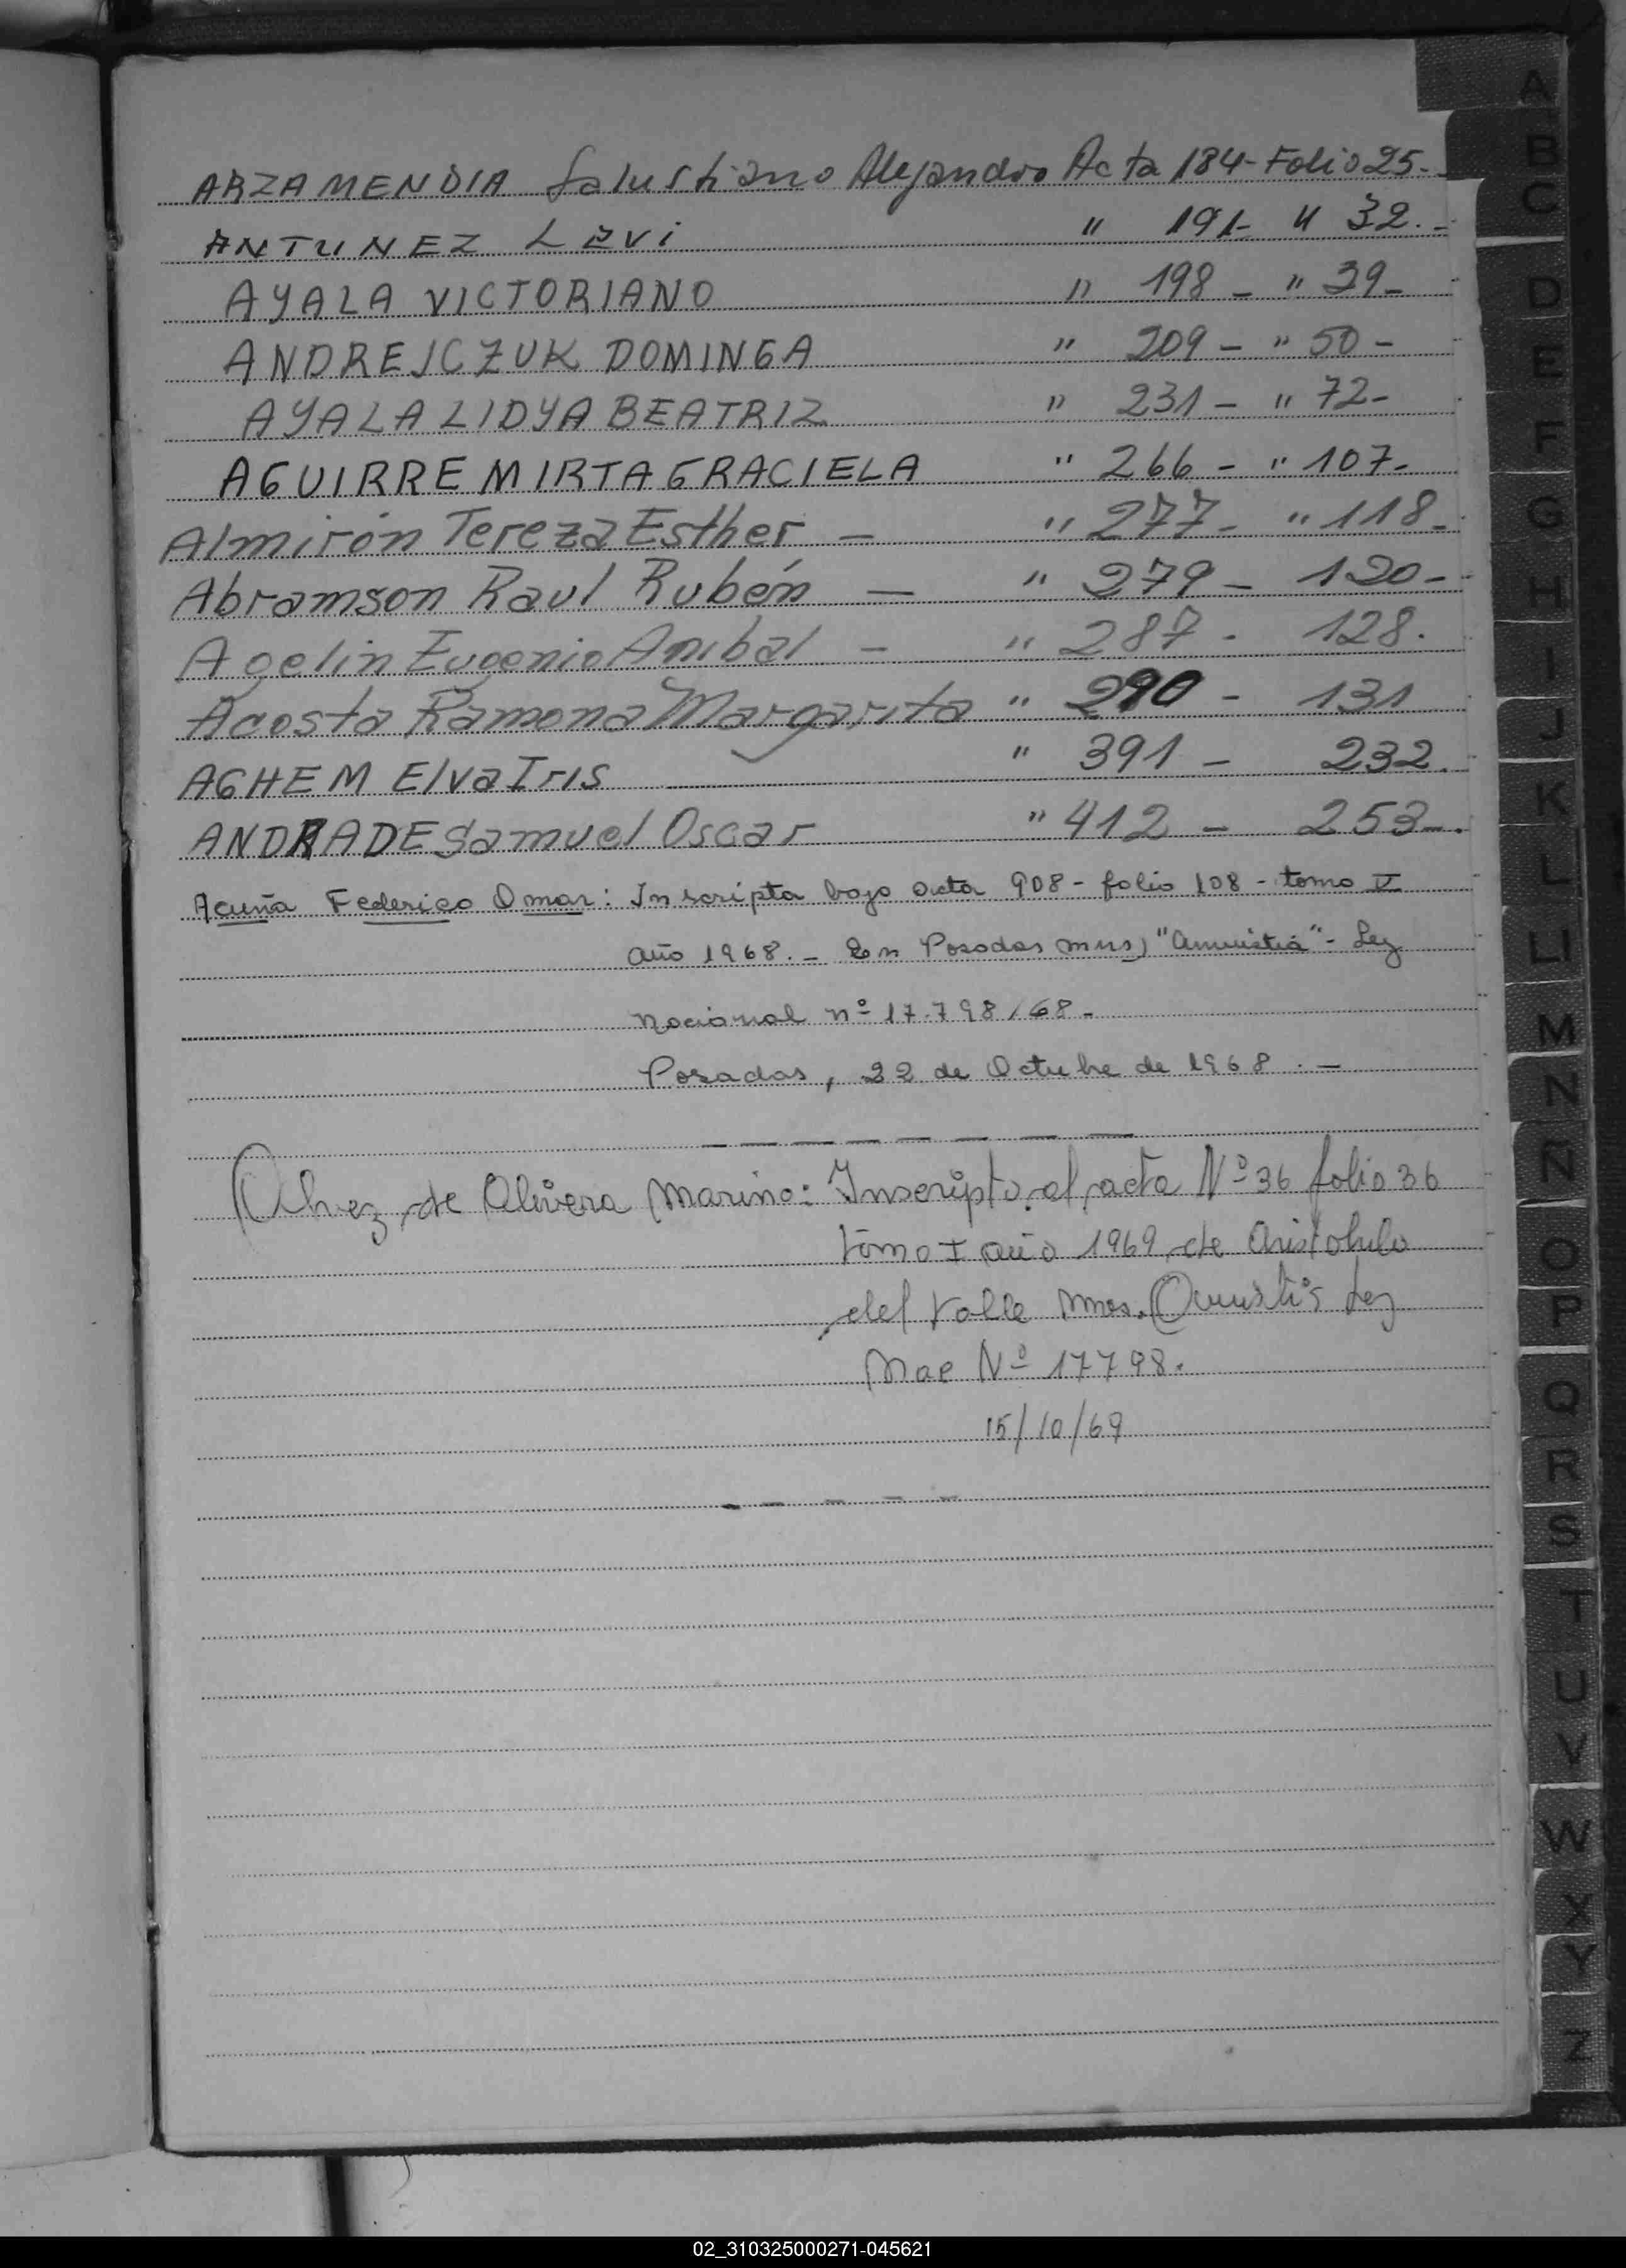 ARZAMENDIA Salustiano Alejandro Acta 184- Folio 25.-
ANTUNEZ Levi " 191- " 32.-
AYALA VICTORIANO " 198 - " 39-
ANDREJCZUK DOMINGA " 209 - " 50 -
AYALA LIDYA BEATRIZ " 231 - " 72-
AGUIRRE MIRTA GRACIELA " 266 - " 107-
Almirón Tereza Esther — " 277- " 118-
Abramson Raul Rubén — " 279 - 120-
Agelin Eugenio Anibal - " 287 - 128.
Acosta Ramona Margarita " 290 - 131
AGHEM Elva Iris " 391 - 232.
ANDRADE Samuel Oscar " 412 - 253-.
Acuña Federico Omar: Inscripta bajo acta 908 - folio 108 - tomo V
año 1968. - En Posadas mns) "Amnistia" - Ley
nacional nº 17.798/68-
Posadas, 22 de Octubre de 1968 . -
Alvez de Olivera Marino: Inscripto al acta Nº 36 folio 36
tomo I año 1969 de Aristobulo
del Valle Mnes. Amnistia Ley
Nac Nº 17798.
15/10/69
A
B
C
D
E
F
G
H
I
J
K
L
LL
M
N
Ñ
O
P
Q
R
S
T
U
V
W
X
Y
Z
02_310325000271-045621